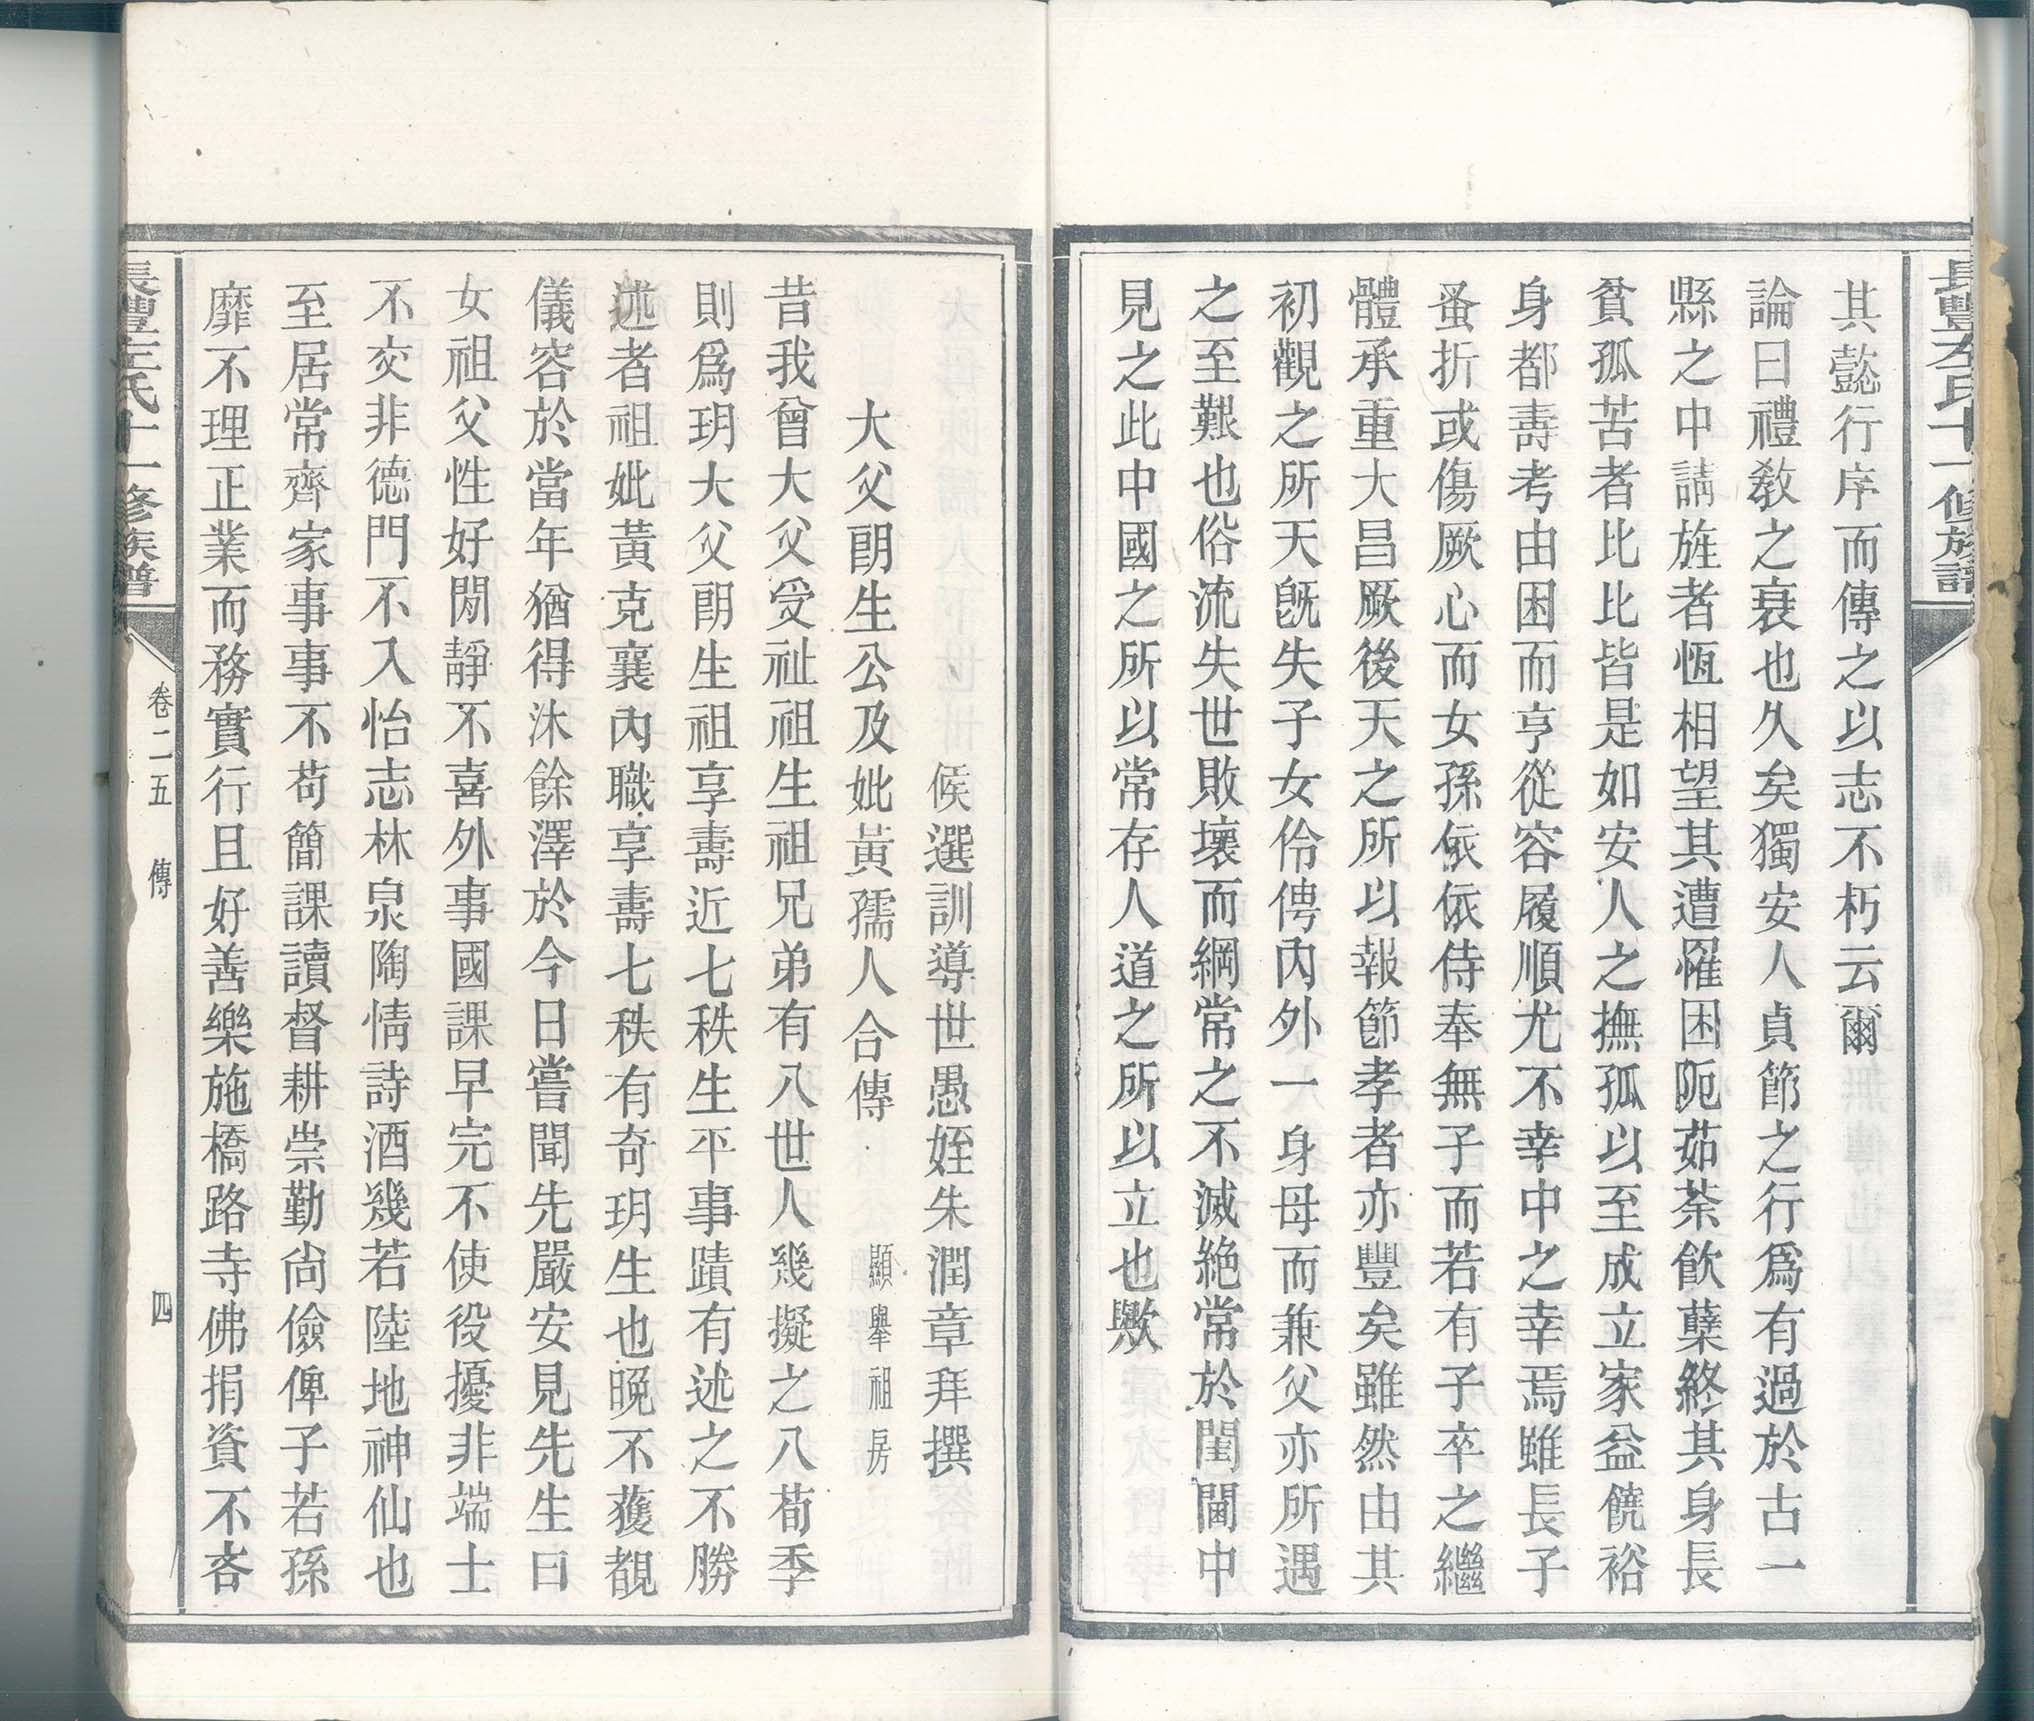 長豐左氏十修族譜
其懿行序而傳之以志不朽云爾
論曰禮教之衰也久矣獨安人貞節之行爲有過於古一
縣之中請旌者恆相望其遭罹困阨茹荼飲蘗終其身長
貧孤苦者比比皆是如安人之撫孤以至成立家益饒裕
身都壽考由困而亨從容履順尤不幸中之幸焉雖長子
蚤折或傷厥心而女孫依依侍奉無子而若有子卒之繼
體承重大昌厥後天之所以報節孝者亦豐矣雖然由其
初觀之所天旣失子女伶俜內外一身母而兼父亦所遇
之至艱也俗流失世敗壞而綱常之不滅絶常於閨闥中
見之此中國之所以常存人道之所以立也歟
候選訓導世愚姪朱潤章拜撰
大父朗生公及妣黃孺人合傳 顯擧祖房
昔我曾大父受祉祖生祖兄弟有八世人幾擬之八荀季
則爲玥大父朗生祖享壽近七秩生平事蹟有述之不勝
述者祖妣黃克襄內職享壽七秩有奇玥生也晚不獲覩
儀容於當年猶得沐餘澤於今日嘗聞先嚴安見先生曰
女祖父性好閒靜不喜外事國課早完不使役擾非端士
不交非德門不入怡志林泉陶情詩酒幾若陸地神仙也
至居常齊家事事不苟簡課讀督耕崇勤尙儉俾子若孫
靡不理正業而務實行且好善樂施橋路寺佛捐資不吝
長豐左氏十一修族譜
卷二五 傳
四